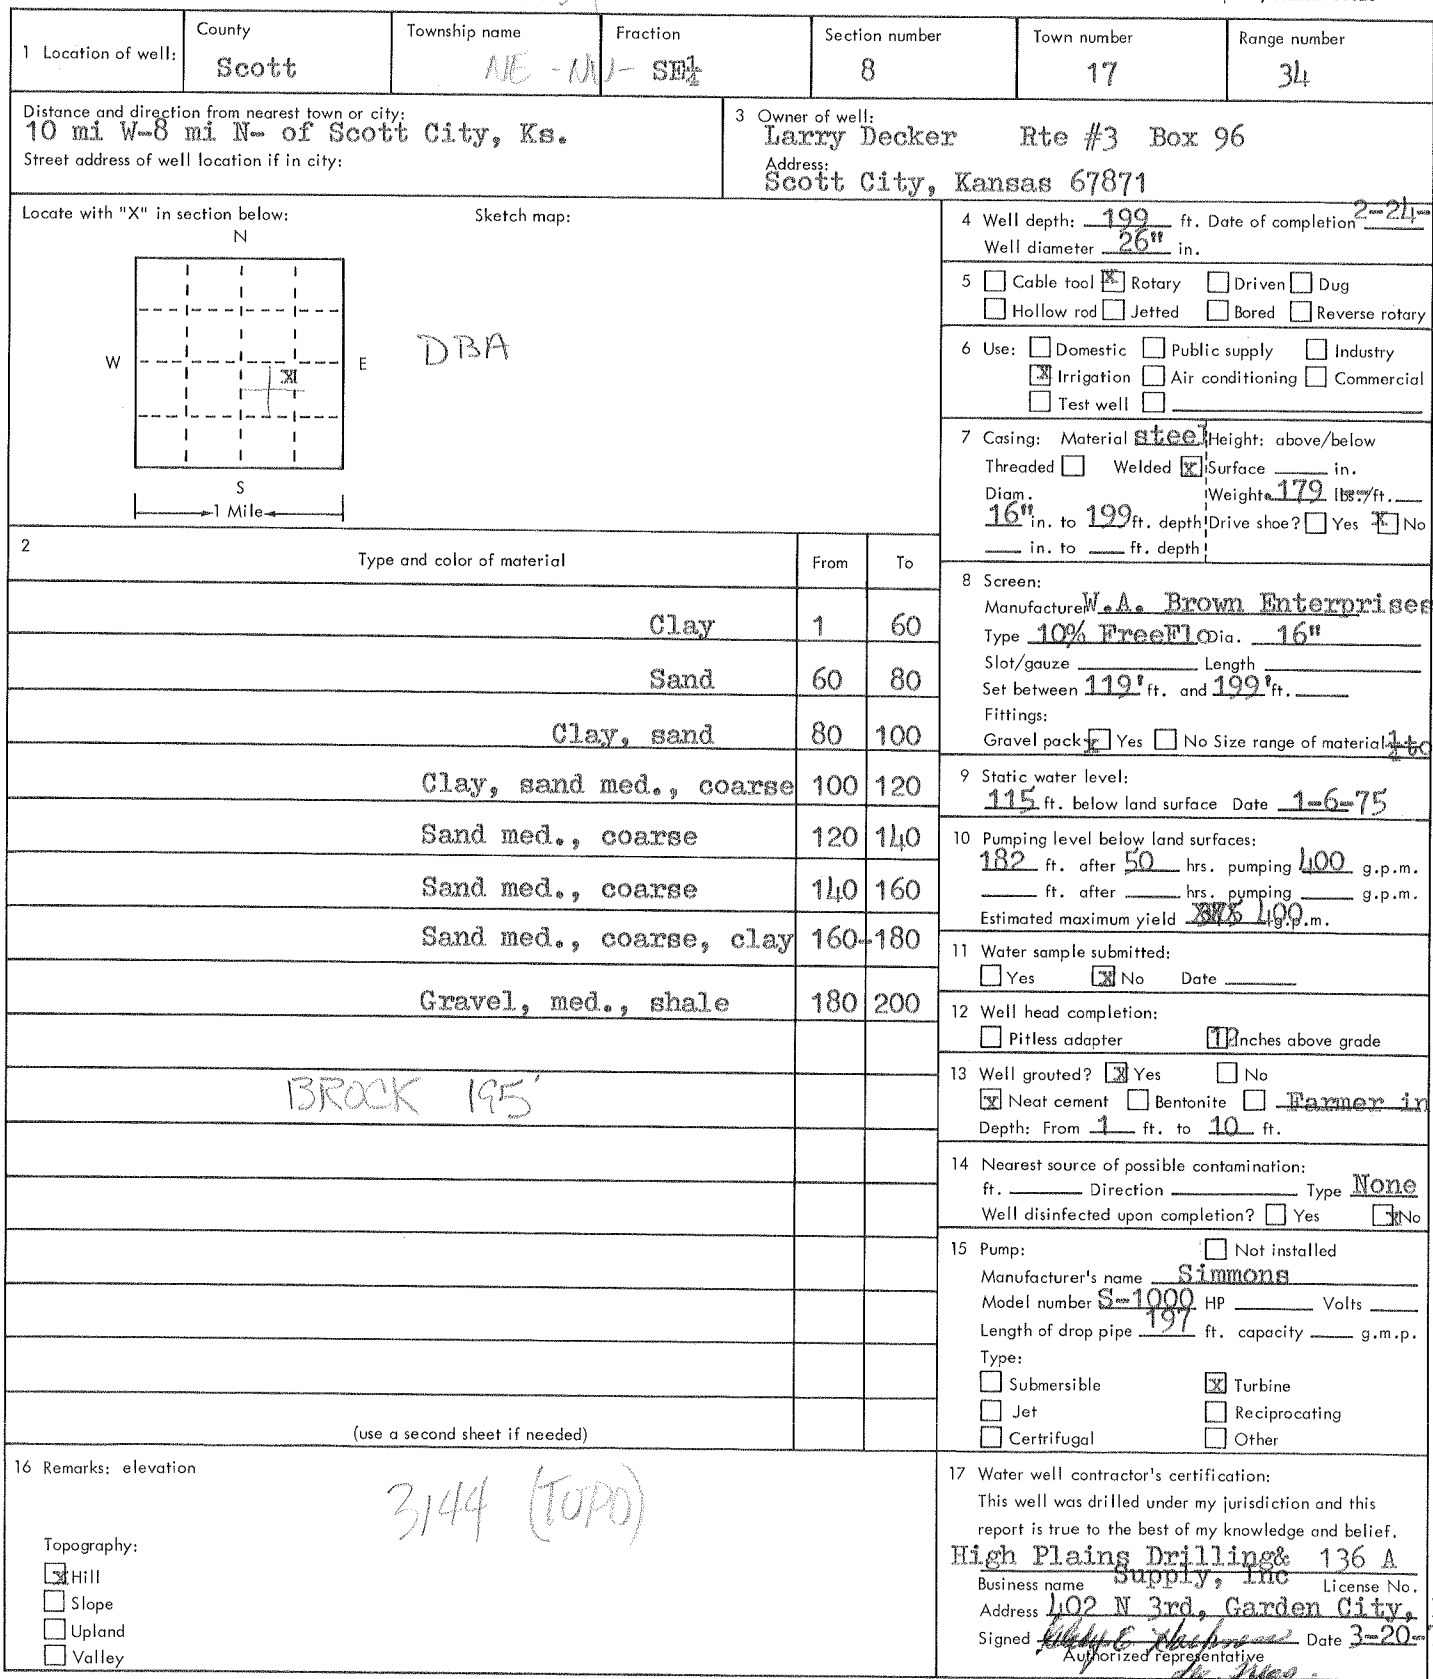 1 Location of well: County Township name Fraction Section number Town number Range number
Scott NE - NW - SE¼ 8 17 34
Distance and direction from nearest town or city:
10 mi W-8 mi N- of Scott City, Ks.
Street address of well location if in city:
3 Owner of well:
Larry Decker Rte #3 Box 96
Address:
Scott City, Kansas 67871
Locate with "X" in section below: Sketch map:
N
W E
X
S
1 Mile
DBA
4 Well depth: 199 ft. Date of completion 2-24-
Well diameter 26" in.
5 Cable tool X Rotary Driven Dug
Hollow rod Jetted Bored Reverse rotary
6 Use: Domestic Public supply Industry
X Irrigation Air conditioning Commercial
Test well
7 Casing: Material steel Height: above/below
Threaded Welded X Surface in.
Diam. Weight 179 lbs./ft.
16" in. to 199 ft. depth Drive shoe? Yes X No
in. to ft. depth
2 Type and color of material From To
Clay 1 60
Sand 60 80
Clay, sand 80 100
Clay, sand med., coarse 100 120
Sand med., coarse 120 140
Sand med., coarse 140 160
Sand med., coarse, clay 160-180
Gravel, med., shale 180 200
BROCK 195'
(use a second sheet if needed)
8 Screen:
Manufacturer W.A. Brown Enterprises
Type 10% FreeFlo Dia. 16"
Slot/gauze Length
Set between 119' ft. and 199' ft.
Fittings:
Gravel pack X Yes No Size range of material ¼ to
9 Static water level:
115 ft. below land surface Date 1-6-75
10 Pumping level below land surfaces:
182 ft. after 50 hrs. pumping 400 g.p.m.
ft. after hrs. pumping g.p.m.
Estimated maximum yield 400 g.p.m.
11 Water sample submitted:
Yes X No Date
12 Well head completion:
Pitless adapter 12 Inches above grade
13 Well grouted? X Yes No
X Neat cement Bentonite Farmer in
Depth: From 1 ft. to 10 ft.
14 Nearest source of possible contamination:
ft. Direction Type None
Well disinfected upon completion? Yes X No
15 Pump: Not installed
Manufacturer's name Simmons
Model number S-1000 HP Volts
Length of drop pipe 197 ft. capacity g.m.p.
Type:
Submersible X Turbine
Jet Reciprocating
Certrifugal Other
16 Remarks: elevation
3144 (TOPO)
Topography:
X Hill
Slope
Upland
Valley
17 Water well contractor's certification:
This well was drilled under my jurisdiction and this
report is true to the best of my knowledge and belief.
High Plains Drilling& 136 A
Supply, Inc
Business name License No.
Address 402 N 3rd, Garden City,
Signed Date 3-20-
Authorized representative